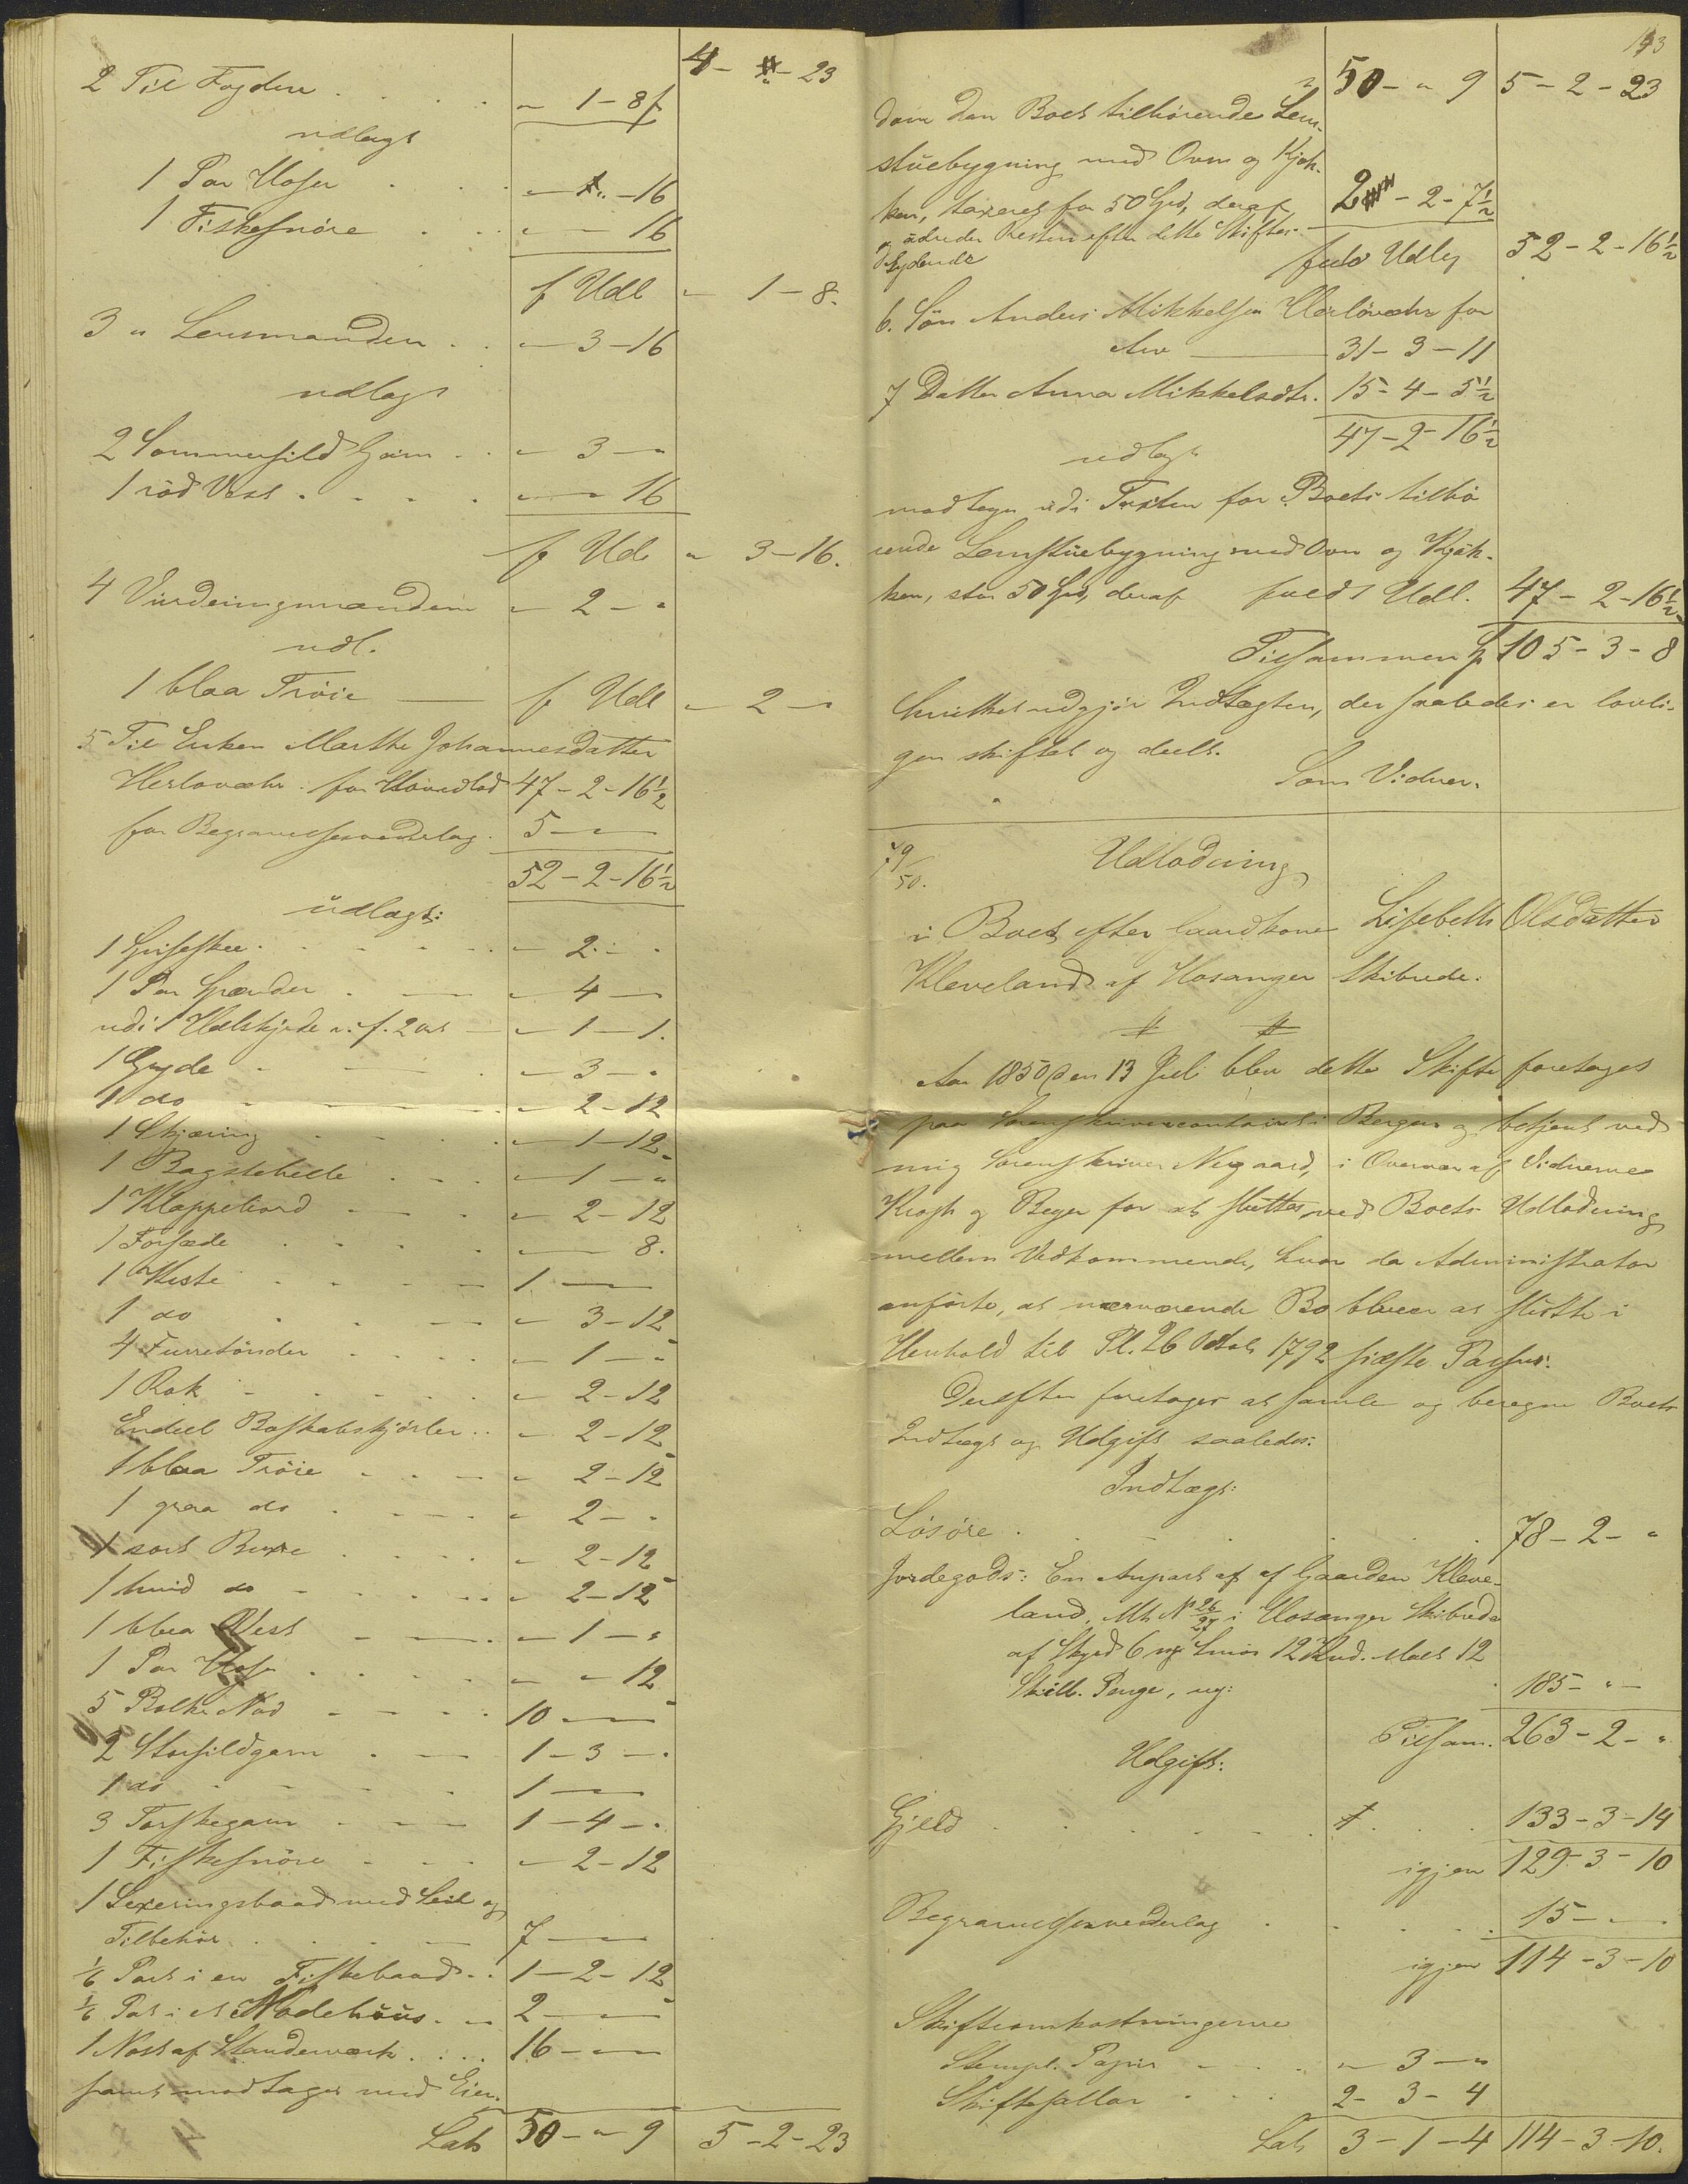 4 - " - 23
2 Til Fogden . . . . " 1 - 8
udlagt
1 Par Hoser . . . " - " - 16
1 Fiskesnöre . . " - 16
f Udl " 1 - 8.
3 " Lensmanden . . " 3 - 16
udlagt
2 Sommersild Garn . . " 3 - "
1 röd Vest . . . . " - 16
f Udl " 3 - 16.
4 Vurderingsmændene " 2 - "
udl.
1 blaa Tröie f Udl " 2 - "
5 Til Enken Marthe Johannesdatter
Herlovær for Hovedlod 47 - 2 - 16½
for Begravelsesvederlag . 5 - "
52 - 2 - 16½
udlagt:
1 Griseskee . . . . . " 2 - "
1 Par Spænder . " 4 - "
udi 1 Halskjede v: f. 2 ort " 1 - 1.
1 Gryde . " 3 - "
1 do " 2 - 12
1 Skjæring . . . . " 1 - 12
1 Bagstehelle . . . " 1 - "
1 Klappebord " 2 - 12
1 Forsæde . . . . . " - 8.
1 Kiste . . . 1 - "
1 do . . " 3 - 12
4 Furretönder . . . . " 1 - "
1 Rok . . . . . " 2 - 12
Endeel Boskabskjörler . . " 2 - 12
1 blaa Tröie . . . " 2 - 12
1 graa do . . . . " 2 - "
1 sort Buxe . . . . " 2 - 12
1 hvid do . . . . " 2 - 12
1 blaa Vest . " 1 - "
1 Par Hoser . . . . " " 12
5 Bolke Nod . . . . 10 - "
2 Storsildgarn . 1 - 3 - "
1 do . . . . 1 - "
3 Torskegarn . . . 1 - 4 - "
1 Fiskesnöre . . . " 2 - 12
1 Sexeringsbaad med Seil og
Tilbehör . . . 7 - "
1/6 Part i en Fiskebaad . . 1 - 2 - 12
1/6 Part i et Nodehuus . . 2 - "
1 Nöst af Standerværk . . . . 16 - "
samt modtager med Eien-
Lats 50 - " 9 5 - 2 - 23
50 - " 9 5 - 2 - 23
dom den Boet tilhörende Lem-
stuebygning med Ovn og Kjök-
ken, taxeret for 50 Spd, deraf 2 - 2 - 7½
udreder Resten efter dette Skiftes
Lydende fuld Udlæg 52 - 2 - 16½
6. Sön Anders Mikkelsen Herlovær for
Arv 31 - 3 - 11
7 Datter Anna Mikkelsdtr. 15 - 4 - 5½
47 - 2 - 16½
udlagt
modtager udi Taxten for Boets tilhö
rende Lemstuebygning med Ovn og Kjök-
ken, stor 50 Spd, deraf fuldt Udl. 47 - 2 - 16½
Tilsammen Sp 105 - 3 - 8
hvilket udgjör Indtægten, der saaledes er lovli-
gen skiftet og deelt.
Som Vidner.
79/50. Udlodning
i Boet efter Gaardkone Lisebeth Olsdatter
Kleveland af Hosanger Skibrede.
Aar 1850 den 13 Juli blev dette Skifte foretaget
paa Sorenskrivercontoiret i Bergen og betjent ved
mig Sorenskriver Nygaard, i Overvær af Vidnerne
Krogh og Beyer for at sluttes ved Boets Udlodning
mellem Vedkommende, hvor da Administrator
anförte, at nærværende Bo bliver at slutte i
Henhold til Pl. 26 Octob 1792 sidste Passus.
Derefter foretoges at samle og beregne Boets
Indtægt og Udgift saaledes:
Indtægt:
Lösöre . . . . . . 78 - 2 - "
Jordegods: En Anpart af af Gaarden Kleve-
land, Mt. No 26/27 i Hosanger Skibrede
af Skyld 6 mrk Smör 12 Kd. Malt 12
Skill. Penge, ny: 185 - " -
Tilsam. 263 - 2 - "
Udgift:
Gjeld . . . . . . . 133 - 3 - 14
igjen 129 - 3 - 10
Begravelsesvederlag . . . . 15 - "
igjen 114 - 3 - 10
Skifteomkostningerne
Stempl. Papir . . . " 3 - "
Skiftesallar . . . 2 - 3 - 4
Lats 3 - 1 - 4 114 - 3 - 10.